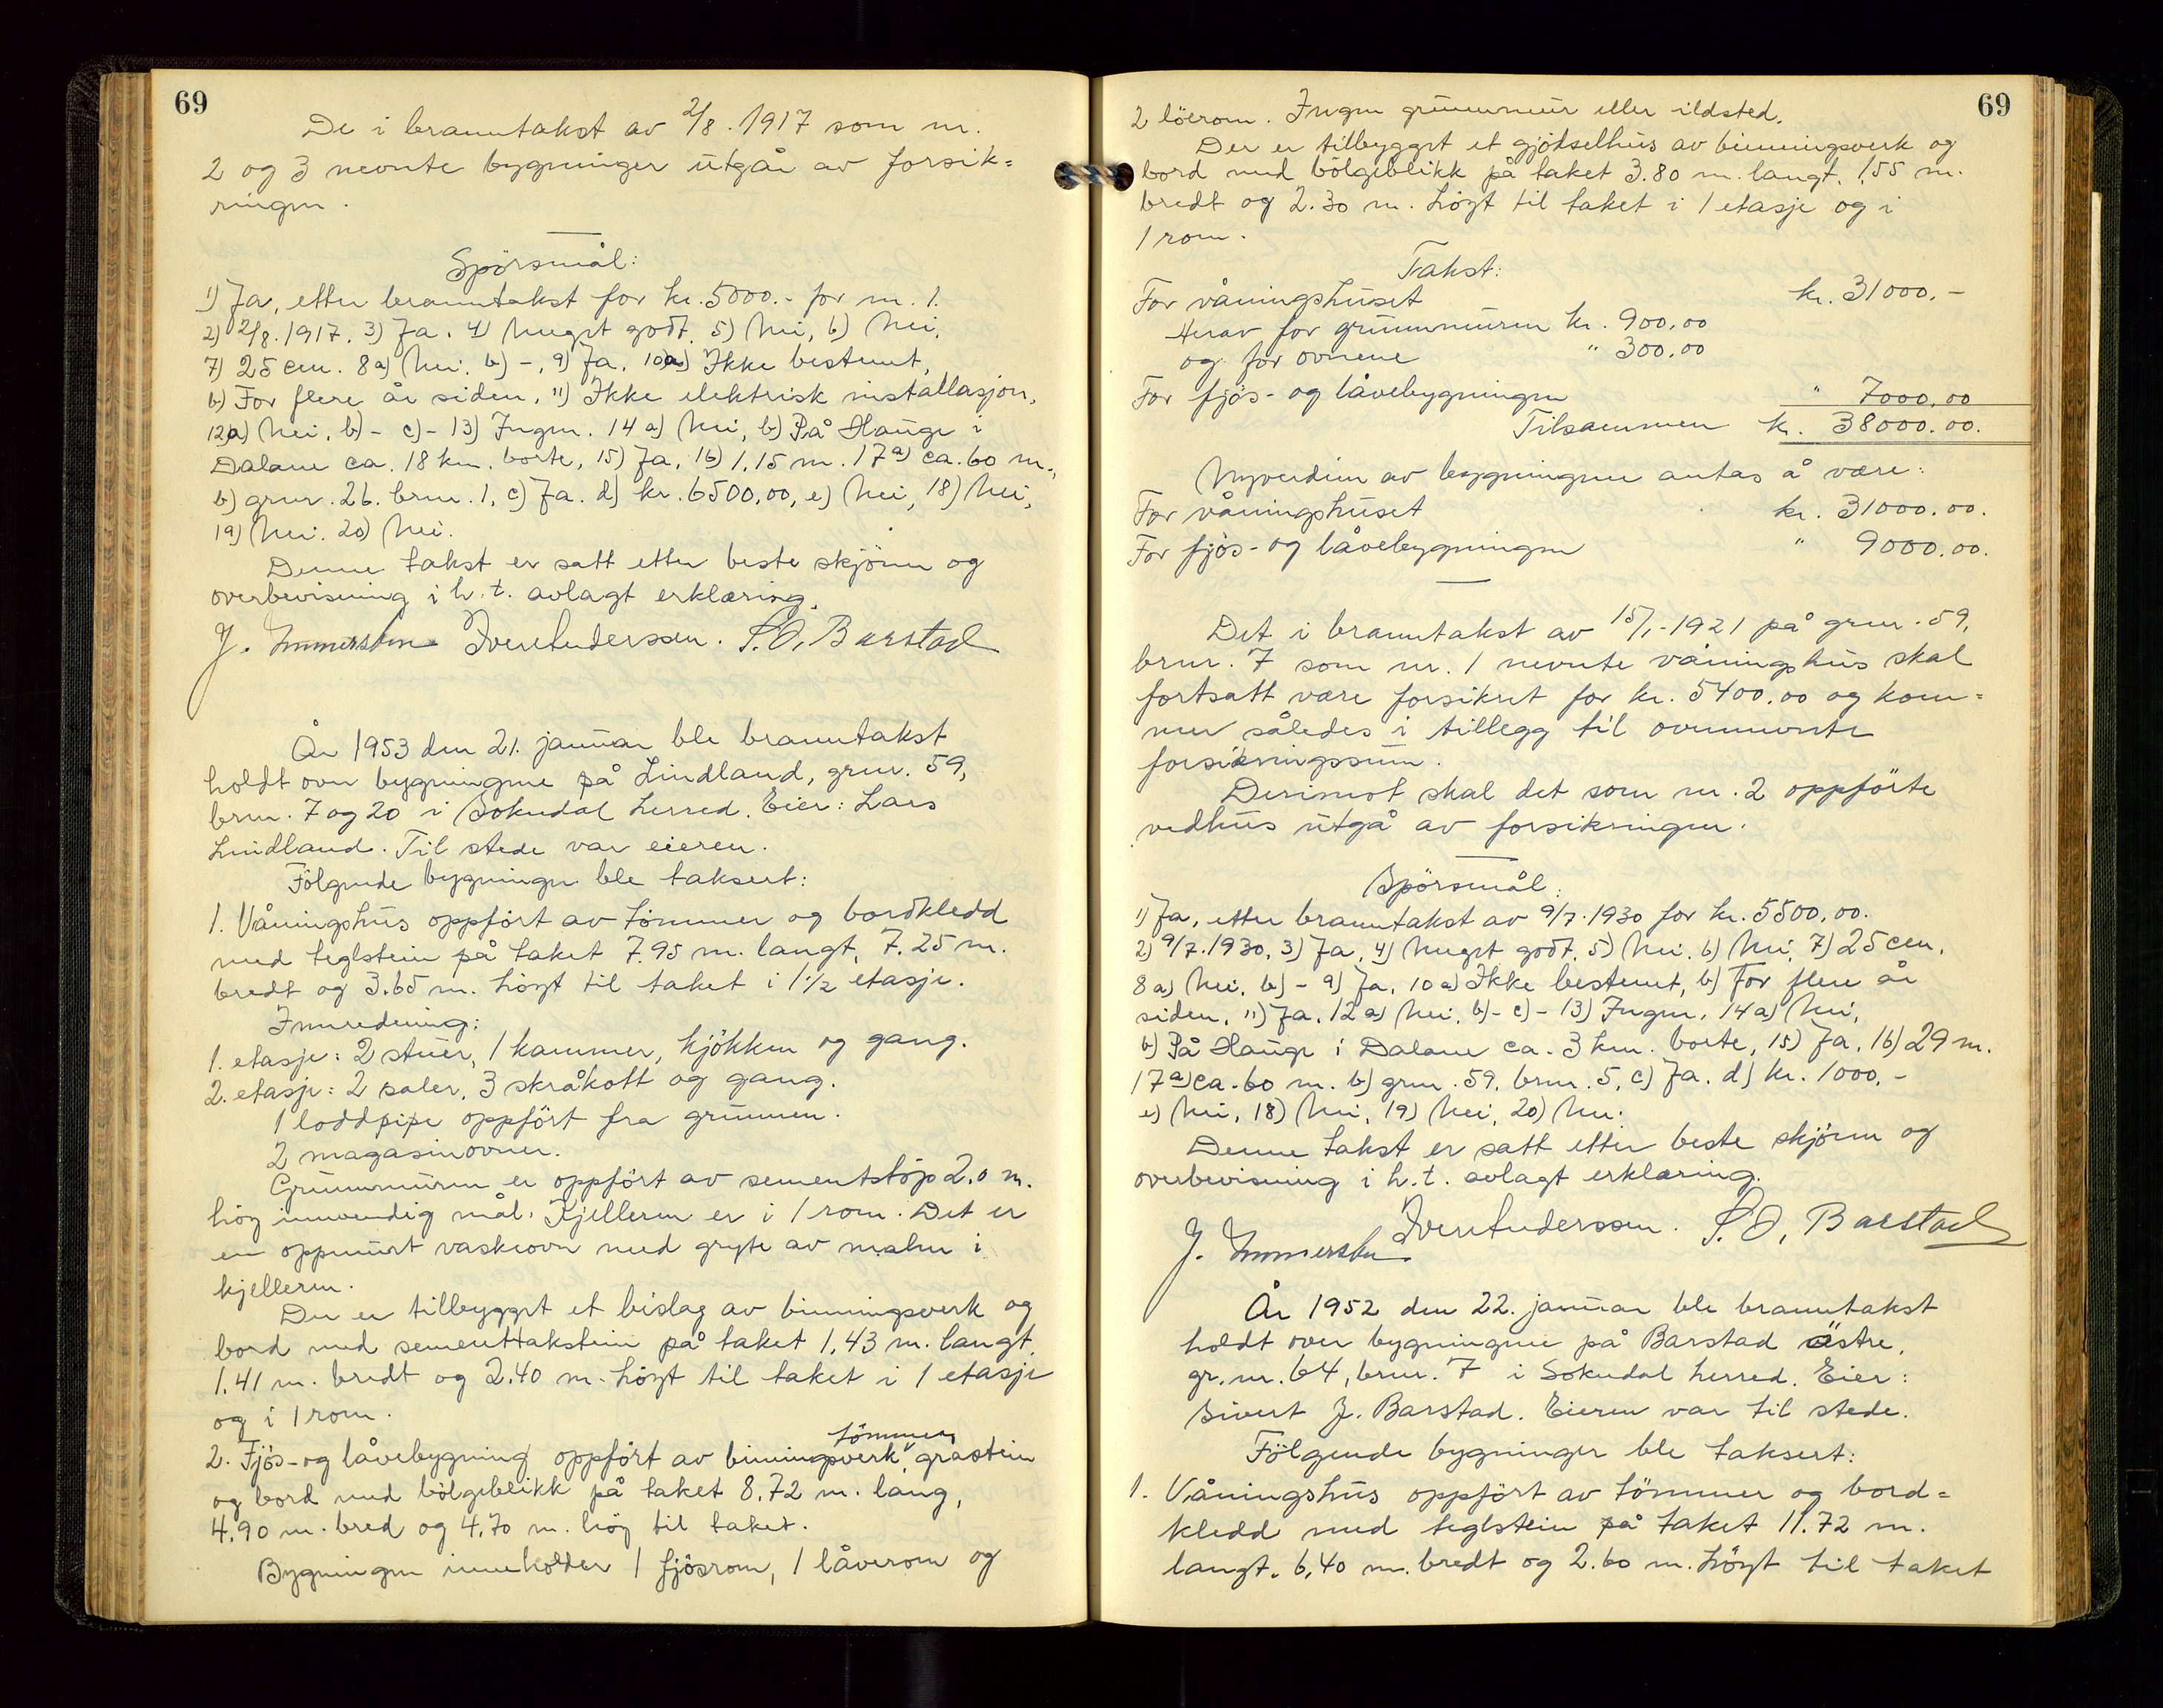 69
De i branntakst av 2/8. 1917 som nr.
2 og 3 nevnte bygninger utgår av forsik=
ringen.
Spörsmål:
1) Ja, etter branntakst for kr. 5000.- for nr. 1.
2) 2/8. 1917. 3) Ja. 4) Meget godt. 5) Nei, 6) Nei.
7) 25 cm. 8a) Nei. b) -, 9) Ja. 10a) Ikke bestemt,
b) For flere år siden. 11) Ikke elektrisk installasjon,
12a) Nei, b) - c) - 13) Ingen. 14 a) Nei, b) På Hauge i
Dalane ca. 18 km. borte, 15) Ja, 16) 1,15 m. 17a) ca. 60 m.,
b) gnr. 26. brnr. 1, c) Ja. d) kr. 6500,00, e) Nei, 18) Nei,
19) Nei. 20) Nei.
Denne takst er satt etter beste skjönn og
overbevisning i h. t. avlagt erklæring.
J. Immerstein Iver Anderssen. S. O. Barstad
År 1953 den 21. januar ble branntakst
holdt over bygningene på Lindland, gnr. 59,
brnr. 7 og 20 i Sokndal herred. Eier: Lars
Lindland. Til stede var eieren.
Fölgende bygninger ble taksert:
1. Våningshus oppfört av tömmer og bordkledd
med teglstein på taket 7.95 m. langt, 7.25 m.
bredt og 3.65 m. höyt til taket i 1 1/2 etasje.
Innredning:
1. etasje: 2 stuer, 1 kammer, kjökken og gang.
2. etasje: 2 saler, 3 skråkott og gang.
1 loddpipe oppfört fra grunnen.
2 magasinovner.
Grunnmuren er oppfört av sementstöp 2.0 m.
höy innvendig mål. Kjelleren er i 1 rom. Det er
en oppmurt vaskeovn med gryte av malm i
kjelleren.
Der er tilbygget et bislag av binningsverk og
bord med sementtakstein på taket 1.43 m. langt,
1.41 m. bredt og 2.40 m. höyt til taket i 1 etasje
og i 1 rom.
tömmer,
2. Fjös- og låvebygning oppfört av binningsverk, gråstein
og bord med bölgeblikk på taket 8.72 m. lang,
4.90 m. bred og 4.70 m. höy til taket.
Bygningen inneholder 1 fjösrom, 1 låverom og
69
2 löerom. Ingen grunnmur eller ildsted.
Der er tilbygget et gjödselhus av binningsverk og
bord med bölgeblikk på taket 3.80 m. langt, 1,55 m.
bredt og 2.30 m. höyt til taket i 1 etasje og i
1 rom.
Takst:
For våningshuset kr. 31000.-
Herav for grunnmuren kr. 900,00
og for ovnene " 300,00
For fjös- og låvebygningen " 7000,00
Tilsammen kr. 38000.00.
Nyverdien av bygningene antas å være:
For våningshuset kr. 31000.00.
For fjös- og låvebygningen " 9000.00.
Det i branntakst av 15/1.-1921 på gnr. 59,
brnr. 7 som nr. 1 nevnte våningshus skal
fortsatt være forsikret for kr. 5400,00 og kom=
mer således i tillegg til ovennevnte
forsikringssum.
Derimot skal det som nr. 2 oppförte
vedhus utgå av forsikringen.
Spörsmål:
1) Ja, etter branntakst av 9/7. 1930 for kr. 5500,00.
2) 9/7. 1930, 3) Ja, 4) Meget godt, 5) Nei. 6) Nei, 7) 25 cm,
8a) Nei, b) - 9) Ja, 10 a) Ikke bestemt, b) For flere år
siden, 11) Ja, 12a) Nei, b) - c) - 13) Ingen, 14a) Nei,
b) På Hauge i Dalane ca. 3 km. borte, 15) Ja, 16) 29 m.
17a) ca. 60 m. b) gnr. 59, brnr. 5, c) Ja. d) kr. 1000.-
e) Nei, 18) Nei, 19) Nei, 20) Nei.
Denne takst er satt etter beste skjönn og
overbevisning i h. t. avlagt erklæring.
J. Immerstein Iver Anderssen. S. O. Barstad
År 1952 den 22. januar ble branntakst
holdt over bygningene på Barstad östre,
gr. nr. 64, brnr. 7 i Sokndal herred. Eier:
Sivert J. Barstad. Eieren var til stede.
Fölgende bygninger ble taksert:
1. Våningshus oppfört av tömmer og bord=
kledd med teglstein på taket 11.72 m.
langt, 6,40 m. bredt og 2.60 m. höyt til taket